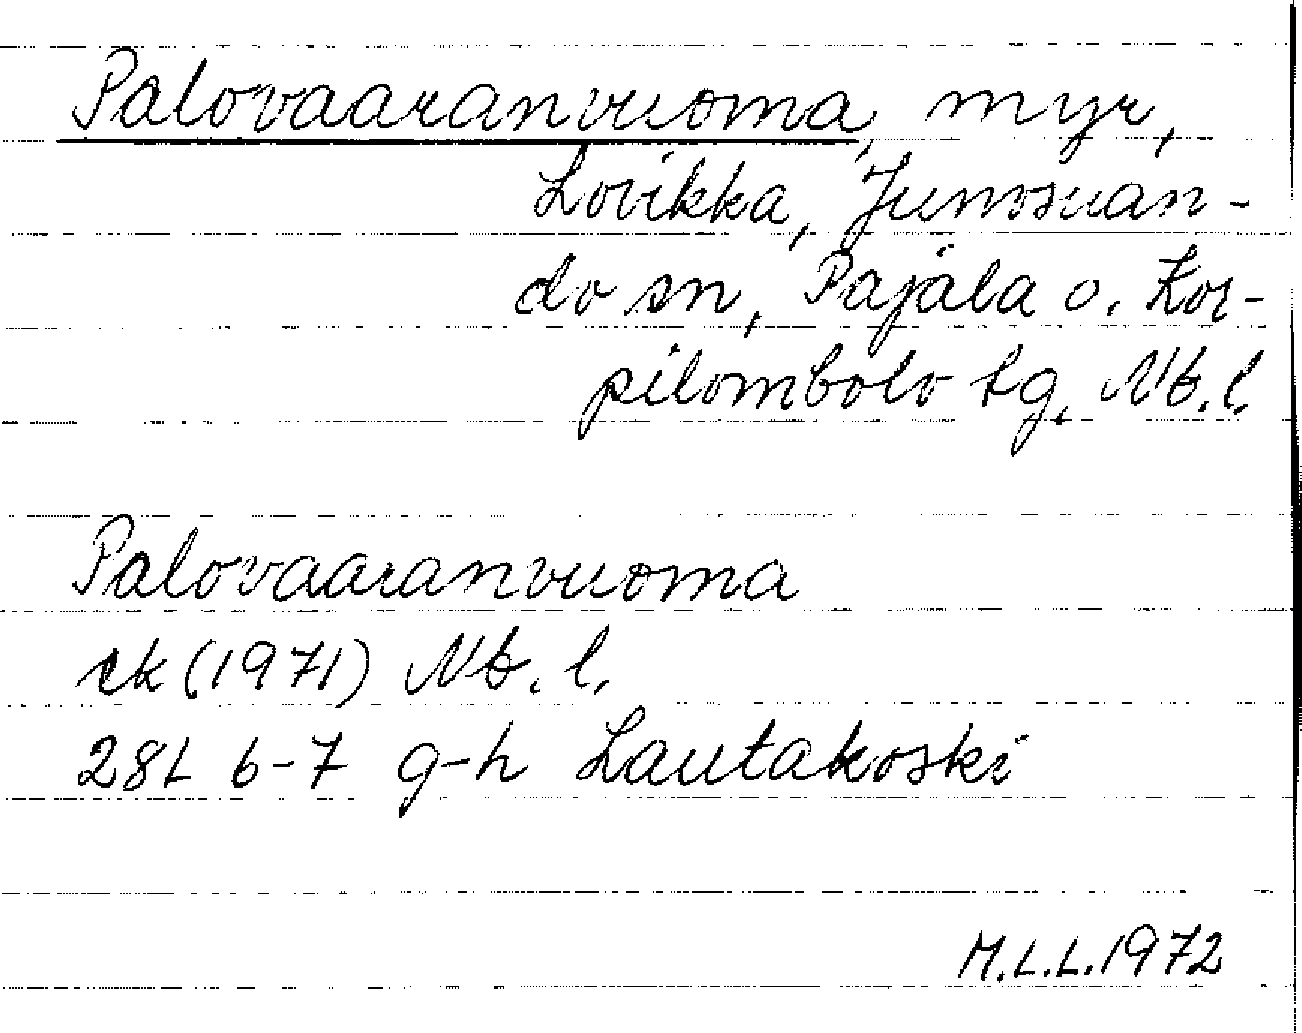 Palovaaranvuoma, myr,
Lovikka, Junosuan-
do sn, Pajala o. Kor-
pilombolo tg. Nb.l.
Palovaaranvuoma
ek (1971) Nb. l.
28L 6-7 g-h Lautakoski
M.L.L. 1972